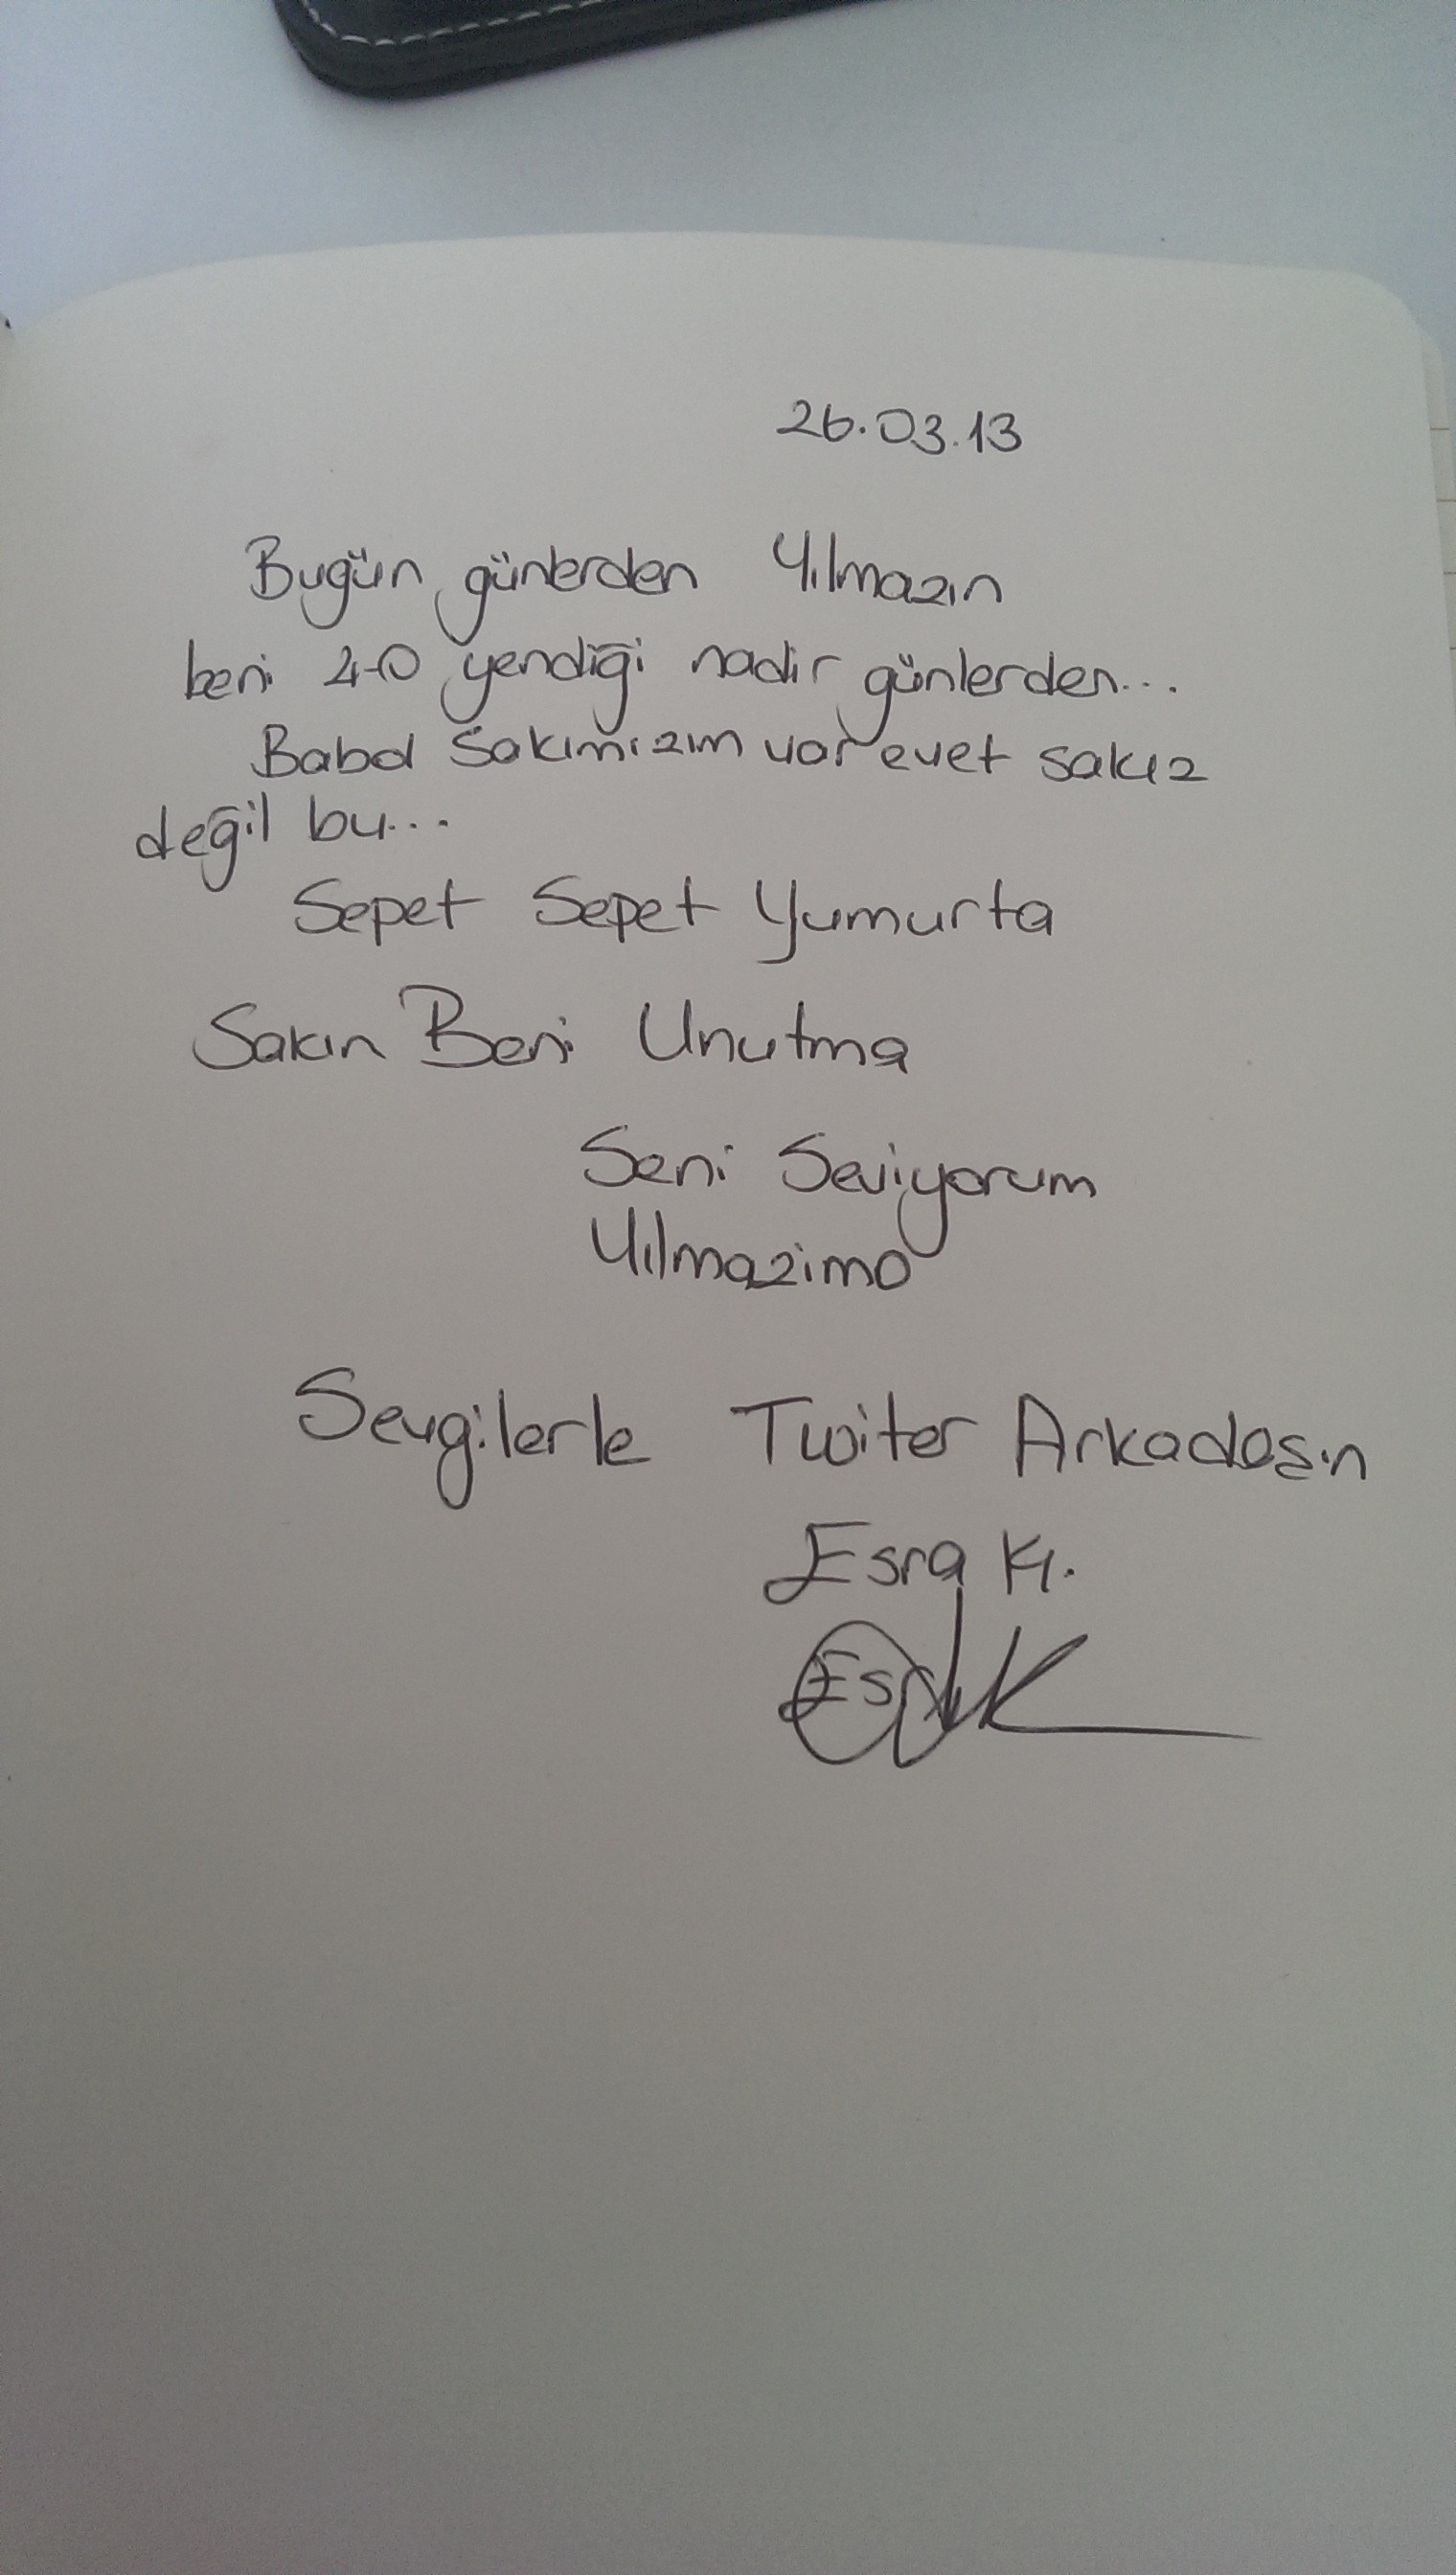 26.03.13
Bugün günlerden Yılmazın
beni 4-0 yendiği nadir günlerden...
Babol Sakımızım var evet sakız
değil bu...
Sepet Sepet Yumurta
Sakın Beni Unutma
Seni Seviyorum
Yılmazimo
Sevgilerle Twiter Arkadaşın
Esra K.
Esra K